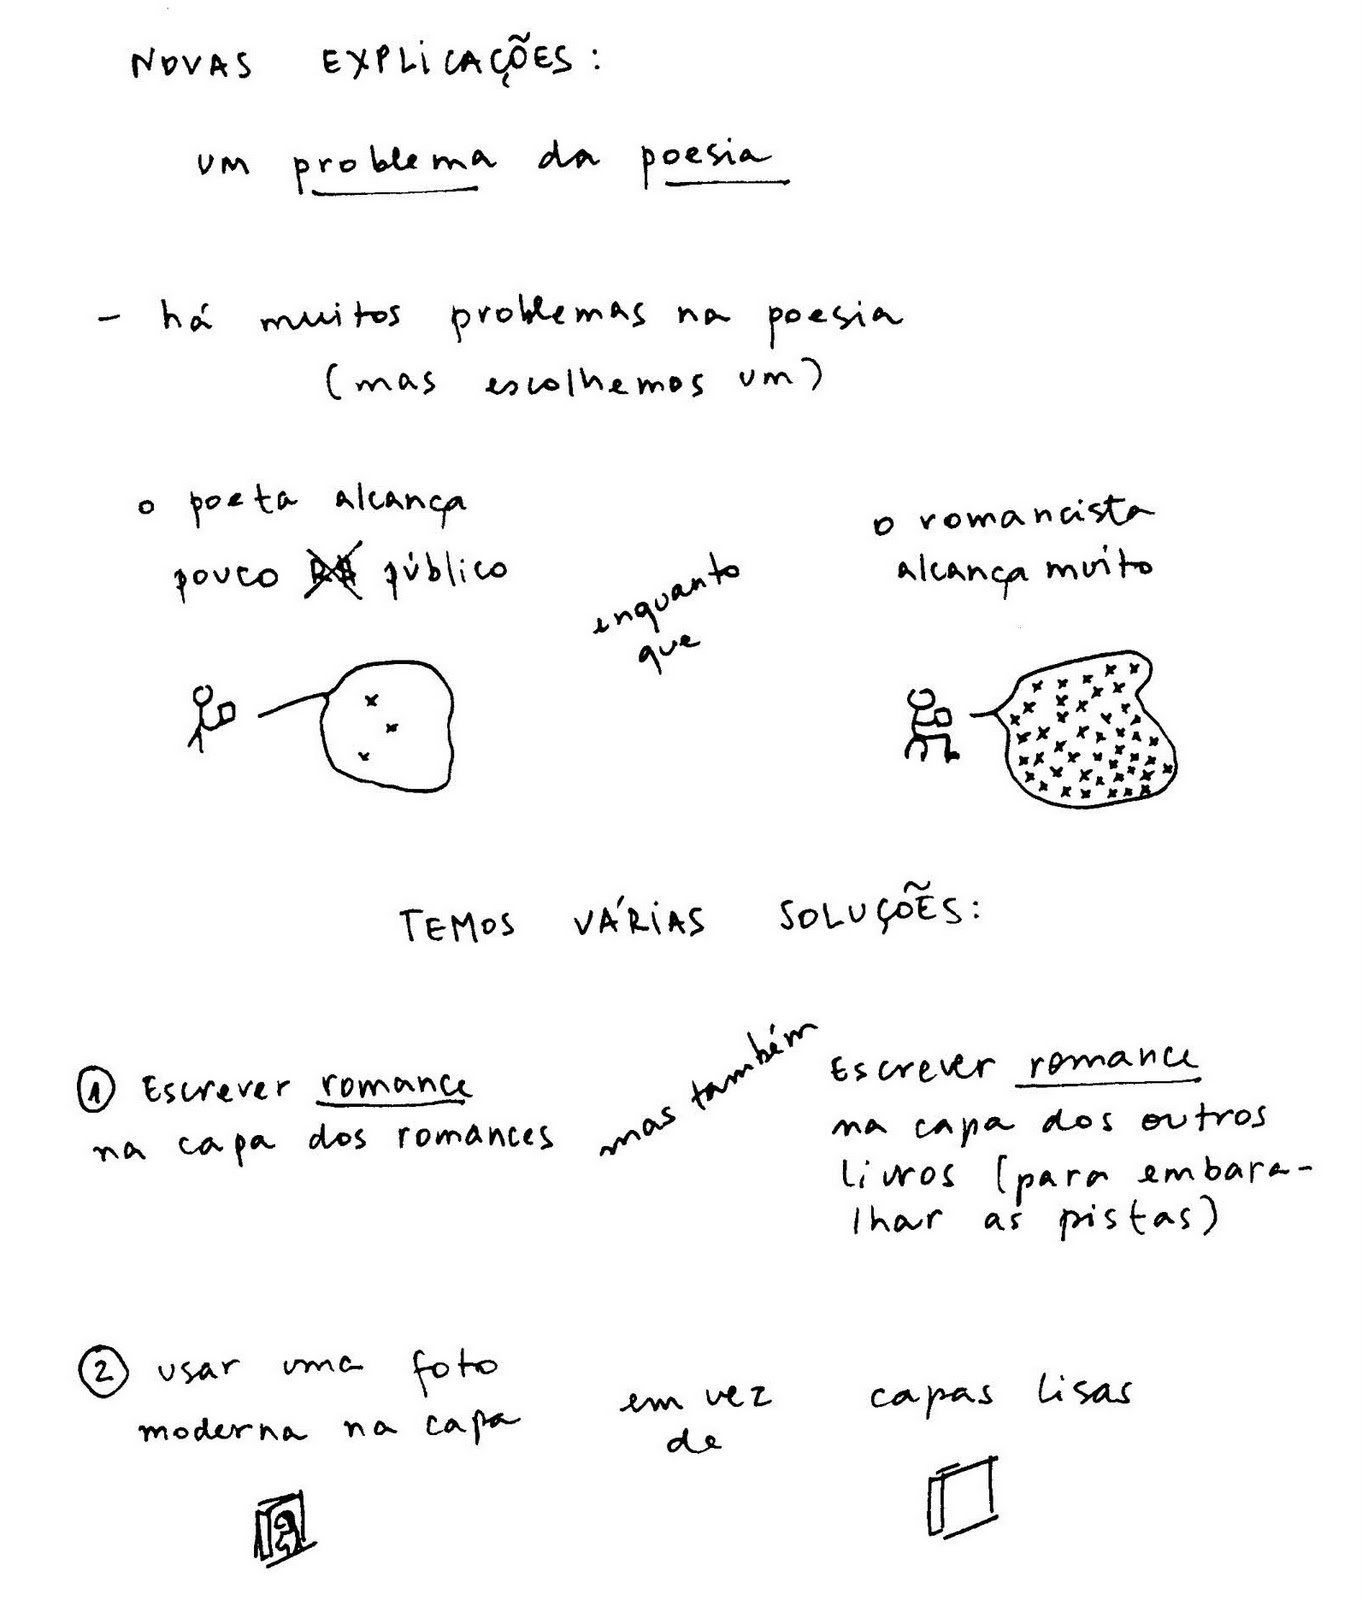 NOVAS EXPLICAÇÕES:
um problema da poesia
- há muitos problemas na poesia
(mas escolhemos um)
o poeta alcança
pouco público
enquanto
que
o romancista
alcança muito
TEMOS VÁRIAS SOLUÇÕES:
1 Escrever romance
na capa dos romances
mas também
Escrever romance
na capa dos outros
livros (para embara-
lhar as pistas)
2 usar uma foto
moderna na capa
em vez
de
capas lisas